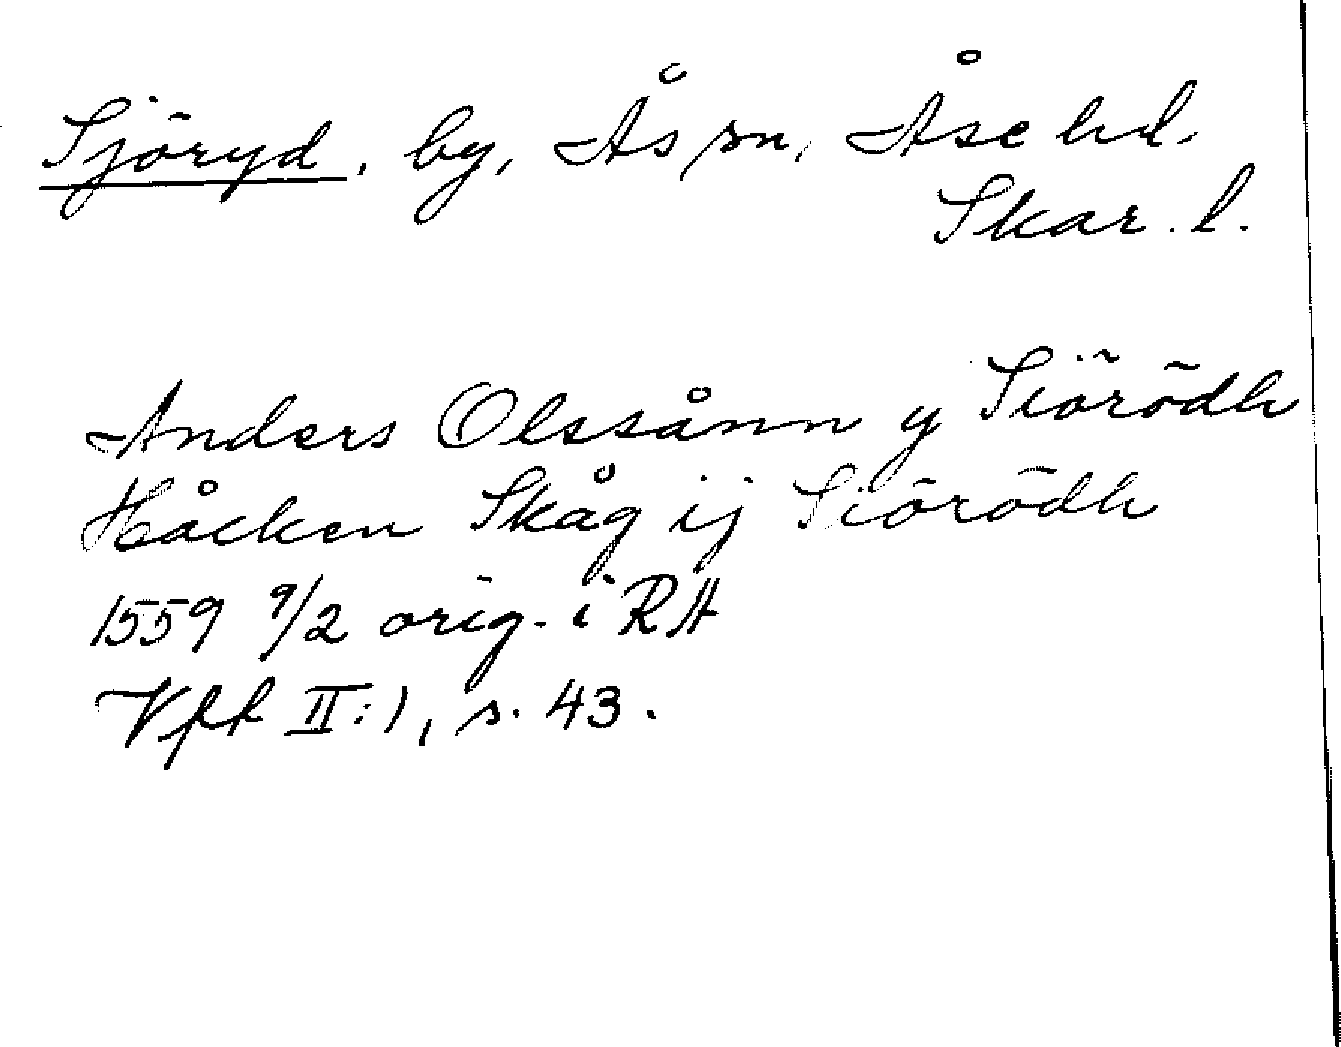 Sjöryd, by, Ås sn, Åse hd.
Skar. l.
Anders Olssånn y Siörödh
Håcken Skåg ij Siörödh
1559 9/2 orig. i RA
Vff II:1, s. 43.